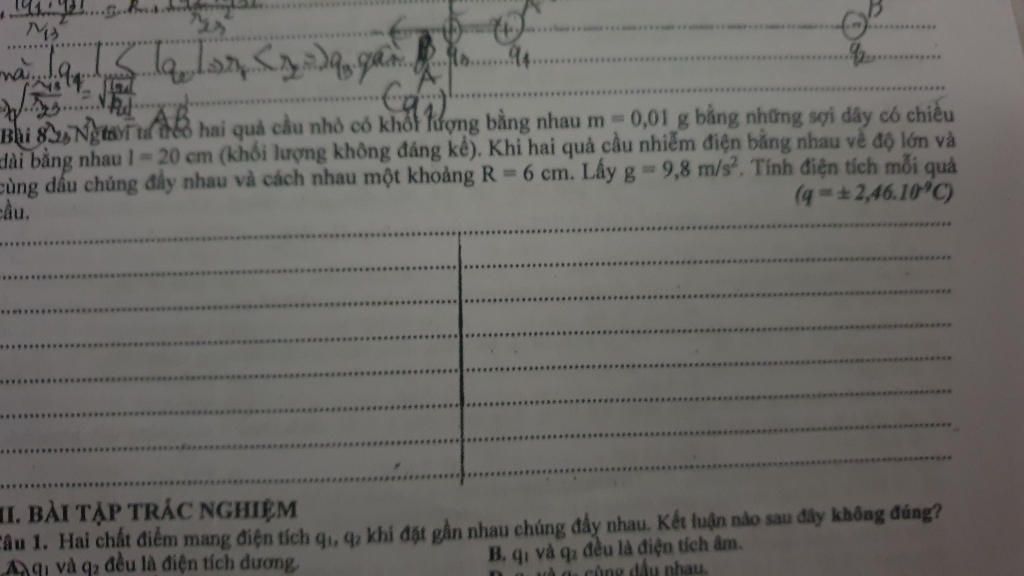 mà |q₁| < |q₂| => r₁ < r₂ => q₃ gần A
(q₁)
q₃ q₁ q₂
B
AB
Bài 8. Người ta treo hai quả cầu nhỏ có khối lượng bằng nhau m = 0,01 g bằng những sợi dây có chiều
dài bằng nhau l = 20 cm (khối lượng không đáng kể). Khi hai quả cầu nhiễm điện bằng nhau về độ lớn và
cùng dấu chúng đẩy nhau và cách nhau một khoảng R = 6 cm. Lấy g = 9,8 m/s². Tính điện tích mỗi quả
cầu. (q = ± 2,46.10⁻⁹C)
II. BÀI TẬP TRẮC NGHIỆM
Câu 1. Hai chất điểm mang điện tích q₁, q₂ khi đặt gần nhau chúng đẩy nhau. Kết luận nào sau đây không đúng?
A. q₁ và q₂ đều là điện tích dương. B. q₁ và q₂ đều là điện tích âm.
cùng dấu nhau.